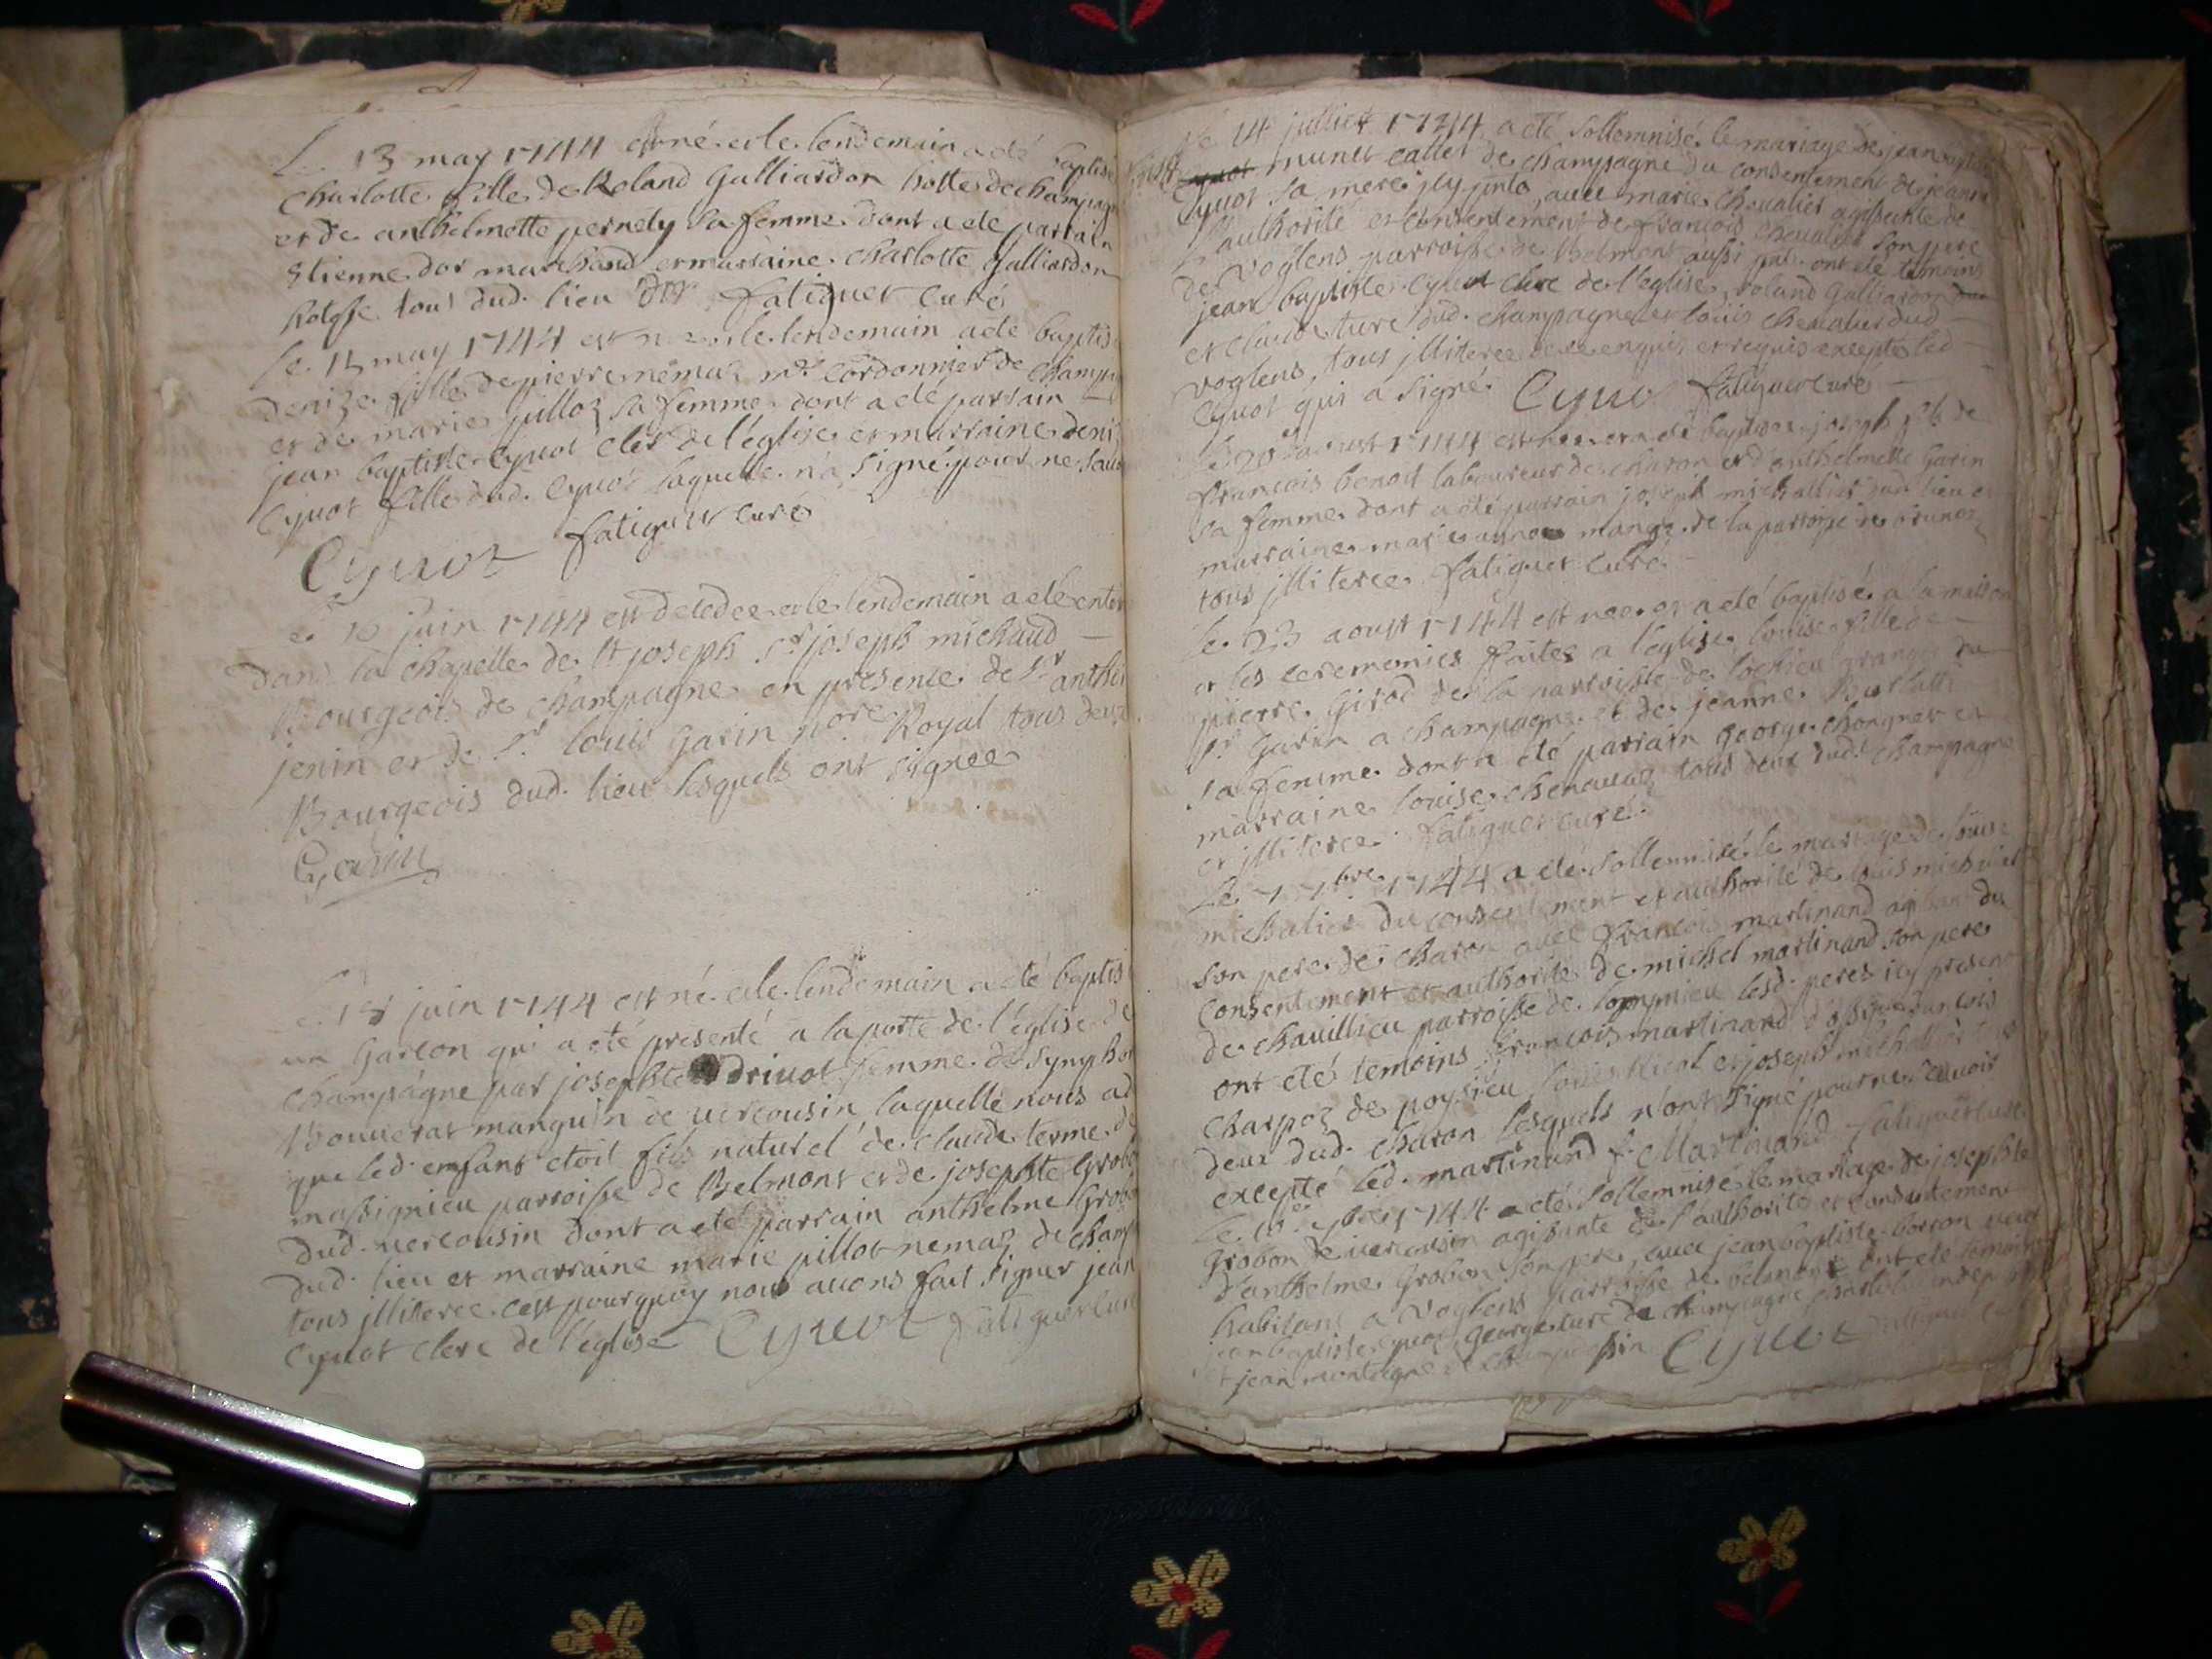 13 may 1744 est né et le lendemain a eté baptisé
charlotte fille de Roland Galliardon hotte de champagne
et de anthelmette pernety sa femme dont a ete parrain
Etienne dor marchand et marraine charlotte Galliardon
hotesse tous dud. lieu fatiguet curé
Le 15 may 1744 est née et le lendemain a eté baptisé
denize fille de pierre nemoz md cordonnier de champ
et de marie pilloz sa femme dont a eté parrain
jean baptiste Cyuot clerc de l'église et marraine deni
Cyuot fille dud. Cyuot laquelle n'a signé pour ne sauoir
Cyuot fatiguet curé
juin 1744 est decedee et le lendemain a eté enter
dans la chapelle de St joseph Sr joseph michaud
Bourgeois de champagne en presence de Sr anthel
jenin et de Sr louis Garin nore Royal tous deux
Bourgeois dud. lieu lesquels ont signee
Garin
Le 18 juin 1744 est né et le lendemain a eté baptis
un Garcon qui a eté presenté a la porte de l'église de
champagne par josephte driuot femme de symphor
Bouuerat manguin de uercousin laquelle nous a
que led. enfant etoit fils naturel de claude terme de
massignieu parroisse de Belmont et de josephte Grobo
dud. uercousin dont a eté parrain anthelme Grobo
dud. lieu et marraine marie pillot nemoz de champ
tous jlliteree. c'est pourquoy nous auons fait signer jean
Cyuot clerc de l'église Cyuot fatiguet curé
Le 14 julliet 1744 a eté sollemnisé le mariage de jean
munet callet de champagne du consentement de jeanne
Cyuot sa mere jcy, auec marie cheualier agissante de
l'authorité et consentement de francois cheualier son pere
de voglens parroisse de Belmont aussi ont eté temoins
jean baptiste Cyuot clerc de l'église, roland Galliardon
et claude ture dud. champagne et louis cheualier dud
voglens, tous jlliteree de ce enquis et requis excepté led
Cyuot qui a signé Cyuot fatiguet curé
Le 20 aoust 1744 est nee et a eté baptisee joseph fils de
francois benoit laboureur de charon et d'anthelmette Garin
sa femme dont a eté parrain joseph michallier dud lieu et
marraine marie manga de la parroisse de
tous jlliteree fatiguet curé
Le 23 aoust 1744 est nee et a eté baptisé a la maison
et les ceremonies faites a l'eglise louise fille de
pierre Girod de la parroisse de lochieu granger du
Sr Garin a champagne et de jeanne
sa femme dont a eté parrain George et
marraine louise chenauaz tous deux dud. champagne
et jlliteree fatiguet curé
Le 7 7bre 1744 a eté sollemnisé le mariage de louise
michalier du consentement et authorité de louis michalier
son pere de charon auec francois martinand agissant du
consentement et authorité de michel martinand son pere
de chauillieu parroisse de lompnieu lesd. peres jcy present
ont eté temoins francois martinand francois
charpoz de poysieu louis Nicol et joseph michallier
deux dud. charon lesquels n'ont signé pour ne scauoir
excepté led. martinand f. Martinand fatiguet curé
Le 7bre 1744 a eté sollemnisé le mariage de josephte
Grobon de uercousin agissante de l'authorité et consentement
d'anthelme Grobon son pere, auec jean baptiste borron
habitant a voglens parroisse de belmont ont eté temoins
jean baptiste Cyuot, George ture de champagne
et jean montagne Cyuot fatiguet